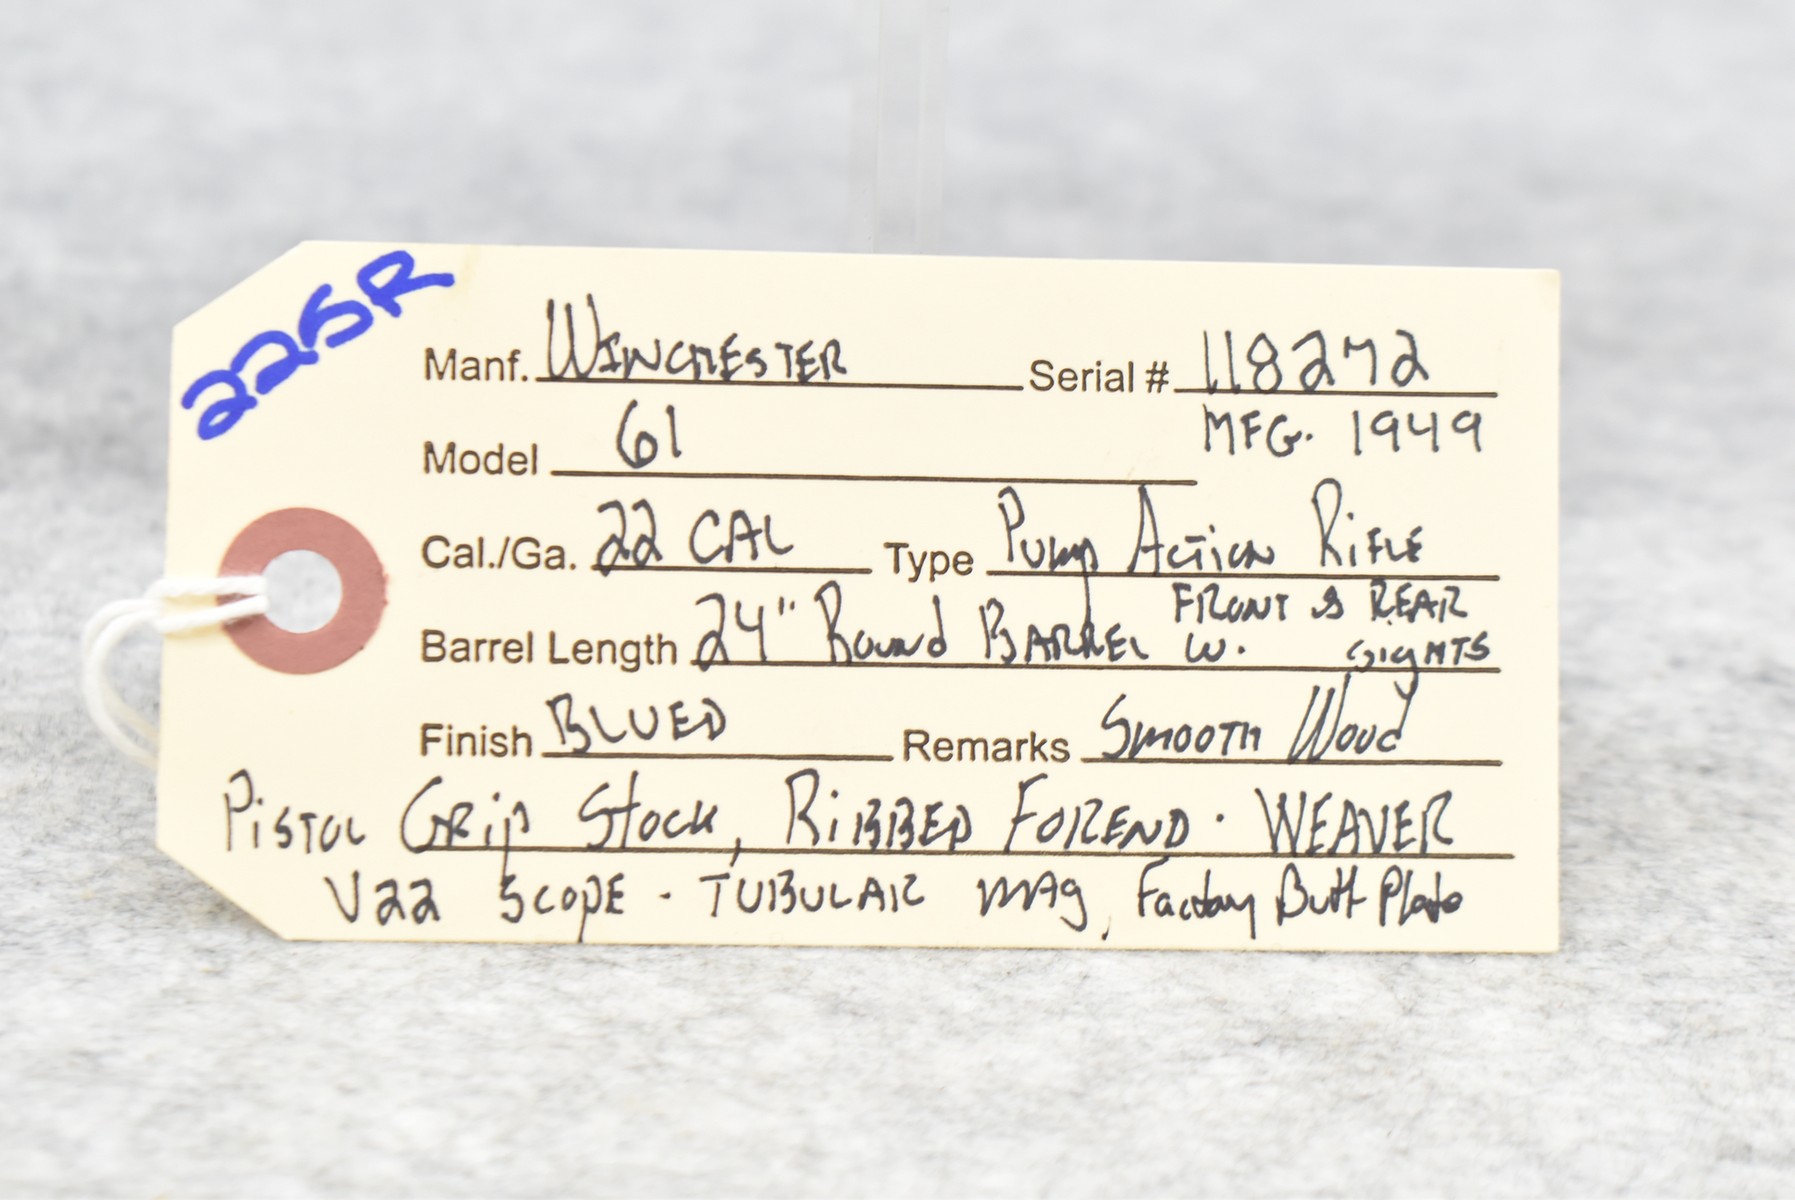 225R
Manf. WINCHESTER Serial # 118272
Model 61 MFG. 1949
Cal./Ga. 22 CAL Type Pump Action Rifle
Barrel Length 24" Round BARREL W. FRONT & REAR SIGHTS
Finish BLUED Remarks SMOOTH Wood
PISTOL GRip Stock, RiBBED FOREND · WEAVER
V22 SCOPE - TUBULAR MAg, Factory Butt Plate